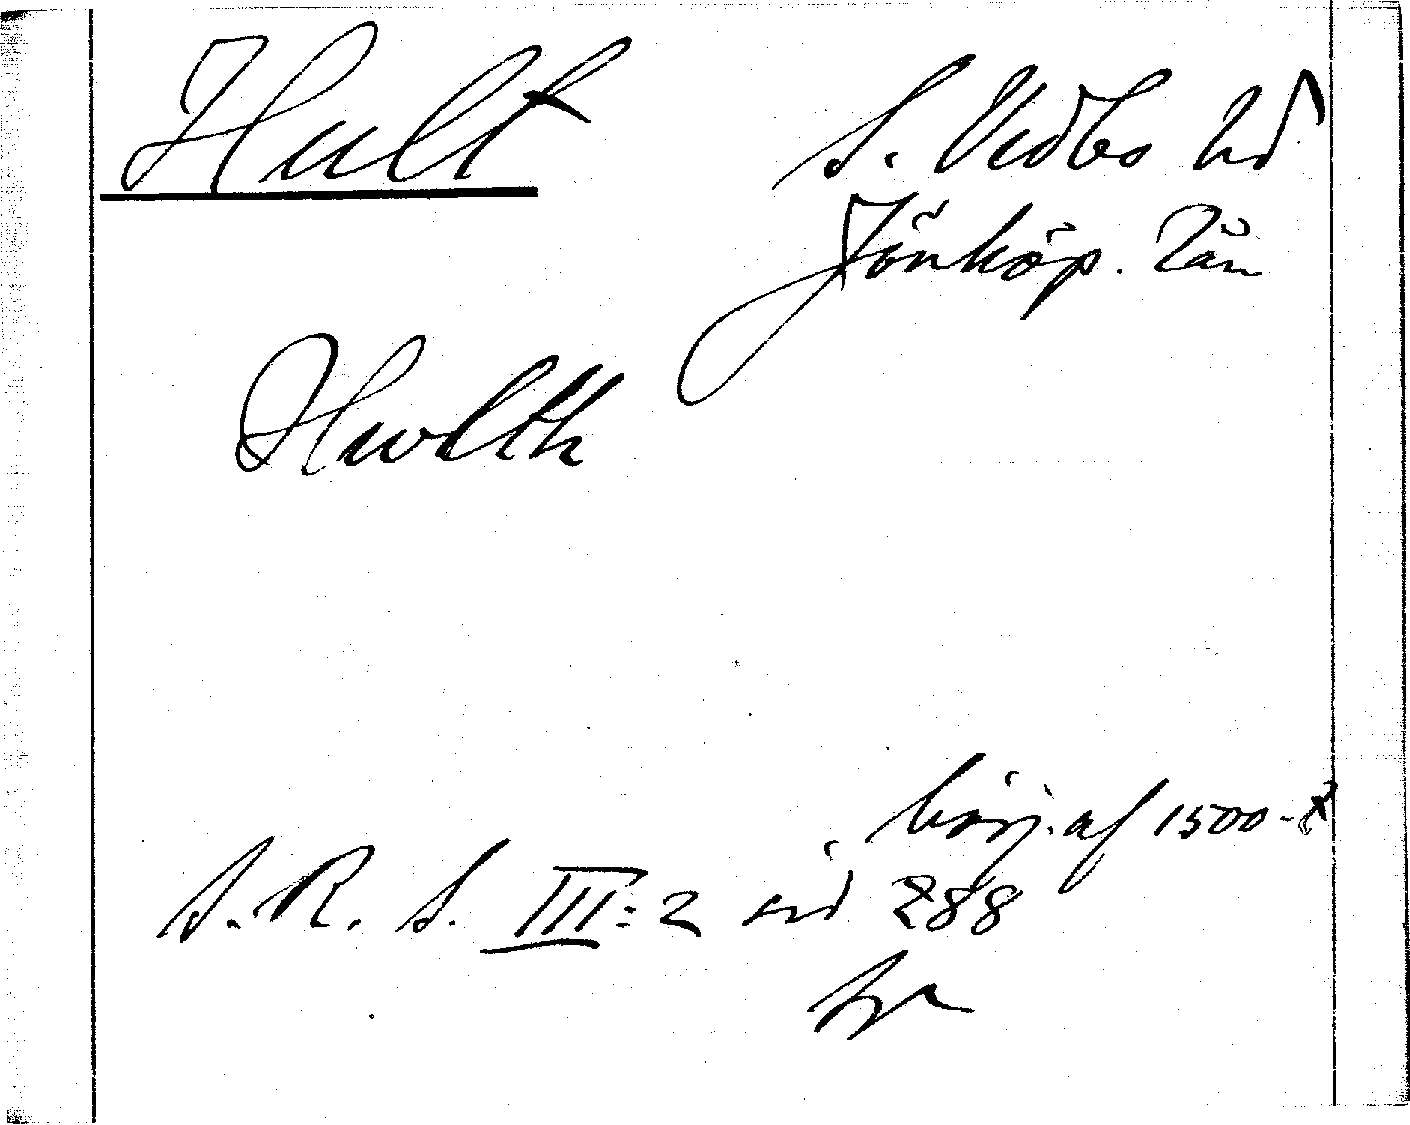 Hult S. Vedbo hd
Jönköp. län
Hwlth
börj. af 1500-t
S. R. S. III:2 sid 288